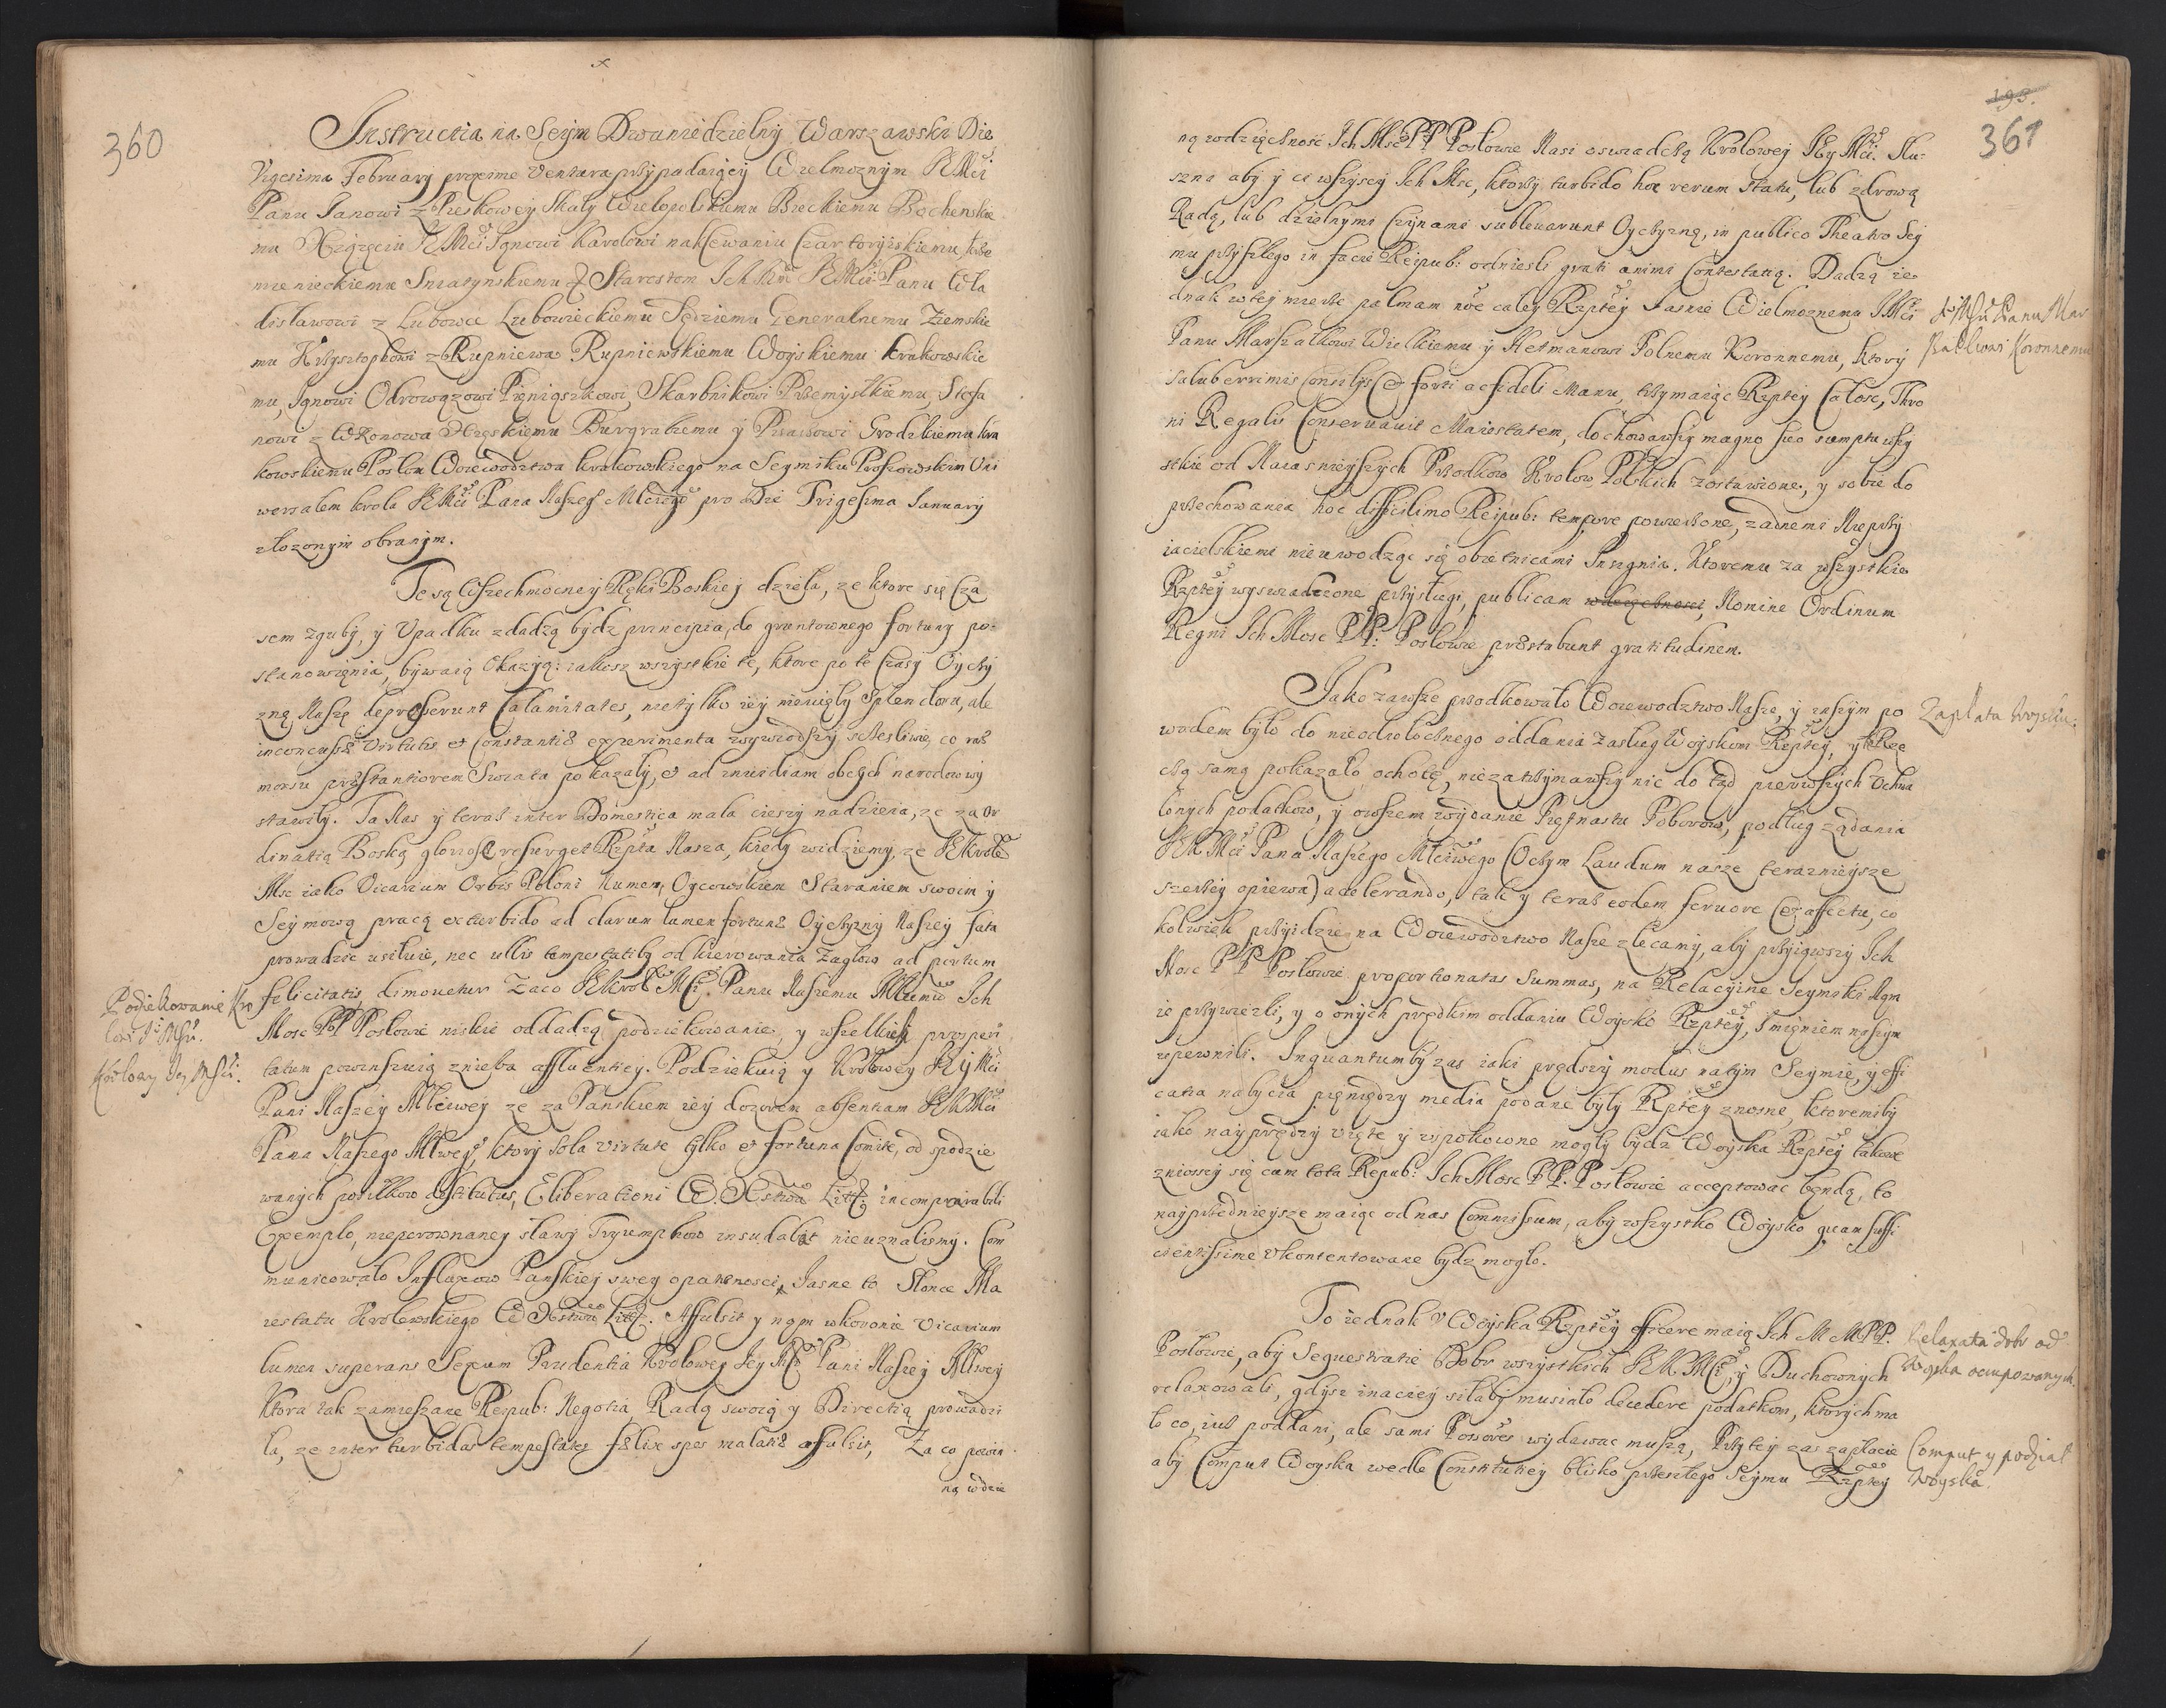 360
Instructia na Seym Dwuniedzielny Warszawski Die
Vigesima February proxime Ventura przypadaiący Wielmoznym JEMci
Panu Janowi z Pieskowey Skały Wielopolskiemu Bieckiemu Bochenskie
mu Xiązęciu JEMci Ignowi Karolowi na Klewaniu Czartoryiskiemu Krze
mienieckiemu Sniatynskiemu & Starostom Ich JEMci Panu Wła
disławowi z Lubowce Lubowieckiemu Sędziemu Generalnemu Ziemskie
mu Krzysztophowi z Rupniewa Rupniewskiemu Woyskiemu Krakowskie
mu, Ignowi Odrowązowi Pieniązkowi, Skarbnikowi Przemyslkiemu, Stefa
nowi z Wronowa Burgrabiemu y Pisarzowi Grodzkiemu Kra
kowskiemu Posłom Woiewodztwa krakowskiego na Seymiku Proszowskim Vni
wersałem krola JEMci Pana Naszego Młciwego pro Die Trigesima January
złozonym obranym.
Te są Wszechmocney Ręki Boskiey dzieła, ze ktore się Cza
sem zguby, y Vpadku zdadzą bydz principia, do gruntownego fortuny po-
stanowięnia, bywaią Okazyą: iakosz wszystkie te, ktore po te Czasy Oyczy
znę Naszę depresserunt Calamitates, nietylko iey nieuięły Splendoru, ale
inconcussæ Virtutis et Constantiæ experimenta wywiodszy sczesliwie, co raz
morsu præstantiorem Swiatu pokazały, et ad inuidiam obcych narodow wy
stawiły. Ta Nas y teraz inter Domestica mala cieszy nadzieia, ze za Or
dinatią Boską gloriose resurget Rzpta Nasza, kiedy widziemy, ze JEKrole
Msc iako Vicarium Orbis Poloni Numen, Oycowskiem Staraniem swoim y
Seymową pracą ex turbido ad clarum lumen fortunæ Oyczyzny Naszey fata
prowadzic usiłuie, nec ullis tempestatibꝫ od kierowania Zaglow ad portum
Podziekowanie Kro
lowi JeMsci.
Krolowy Jey Msci.
felicitatis dimouetur Zaco JEKrol MCi. Panu Naszemu Młmu Ich
Mosc PP Posłowie niskie oddadzą podziekowanie, y wszelkiey prosperi
tatum powinszuią znieba affluentiey. Podziekuią y Krolowey JEy Mci
Pani Naszey Młciwey ze za Panskiem iey dozorem absentiam JEKMci
Pana Naszego Młwego, ktory sola virtute tylko et fortuna Comite, od spodzie
wanych posiłkow destitutus, Eliberationi W. Xstwa Litt: incomparabili
Exemplo, nieporownaney sławy Tryumphow insudabat nieuznalismy. Com
municowało Influxow Panskiey swey opatrnosci, Jasne to Słonce Ma
iestatu Krolewskiego W Xstwu Litt. Affulsit y nam w koronie Vicarium
lumen superans Sexum Prudentia Krolowey Jey Mci Pani Naszey Młwey
Ktora tak zamieszane Reipub: Negotia Radą swoią y Directią prowadzi
ła, ze inter turbidas tempestates felix spes malatiæ affulsit, Za co powin
ną wdzie
193.
361
ną wdzięcznosc Ich Msc PP Posłowie Nasi oswiadczą Krolowey JEy Mci. Słu-
szna aby y ci wszyscy Ich Msc, ktorzy turbido hoc rerum statu, lub zdrową
Radą, lub dzielnymi Czynami subleuarunt Oyczyznę, in publico Theatro Sey
mu przyszłego in facie Reipub: odniesli grati animi Contestatią. Dadzą ie-
dnak wtey mierze palmam całey Rzptey Jasnie Wielmoznemu JMci
JeMsci Panu Mar
szałkowi Koronnemu
Panu Marszałkowi Wielkiemu y Hetmanowi Polnemu Koronnemu, ktory
saluberrimis Consilys et forti ac fideli Manu, trzymaiąc Rzptey Całosc, Thro
ni Regalis Conseruauit Maiestatem, dochowawszy magno suo sumptu wszy
stkie od Naiasnieyszych Przodkow Krolow Polskich zostawione, y sobie do
przechowania hoc difficilimo Reipub: tempore powierzone, zadnemi Nieprzy
iacielskiemi nieuwodząc się obietnicami Insignia. Ktoremu za wszystkie
Rzptey wyswiadczone przysługi, publicam wdzięcznosci, Nomine Ordinum
Regni Ich Mosc PP. Posłowie præstabunt gratitudinem.
Jako zawsze przodkowało Woiewodztwo Nasze, y inszym po
Zapłata Woysku.
wodem było do nieodwłocznego oddania Zasług Woyskom Rzptey, y Rze
czą samą pokazało ochotę, niezatrzymawszy nic do tąd pierwszych Vchwa
lonych podatkow, y owszem wydanie Piętnastu Poborow, podług ządania
JEKMci Pana Naszego Młciwego (Oczym Laudum nasze teraznieysze
szerzey opiewa) accelerando, tak y teraz eodem feruore et affectu, co
kolwiek przyidzie na Woiewodztwo Nasze zlecamy, aby przyiąwszy Ich
Mosc PP Posłowie proportionatas Summas, na Relacyine Seymiki Nam
ie przywiezli, y o onych prędkim oddaniu Woysko Rzptey, Imięniem naszym
upewnili. Inquantumby zas iaki prędszy modus natym Seymie, y effi
catia nabycia pięniędzy media podane były Rzptey znosne, ktoremiby
iako nayprędzy vięte y uspokoione mogły bydz Woyska Rzptey takowe
zniosszy się cum tota Repub: Ich Mosc PP. Posłowie acceptowac będą, to
nayprzednieysze maiąc od nas Commissum, aby wszystko Woysko quam suffi
cientissime vkontentowane bydz mogło.
To iednak v Woyska Rzptey efficere maią Ich M MPP.
Relaxata dobr od
Woyska occupowanych.
Posłowie, aby Sequestratie Dobr wszystkich JEKMCi, y Duchownych
relaxowali, gdysz inaczey siłaby musiało decedere podatkom, ktorych ma
ło co, iuz poddani, ale sami Possores wydawac muszą, Przytey zas zapłacie
Comput y podział
Woyska.
aby Comput Woyska wedle Constitutiey blisko przeszłego Seymu Rzptey